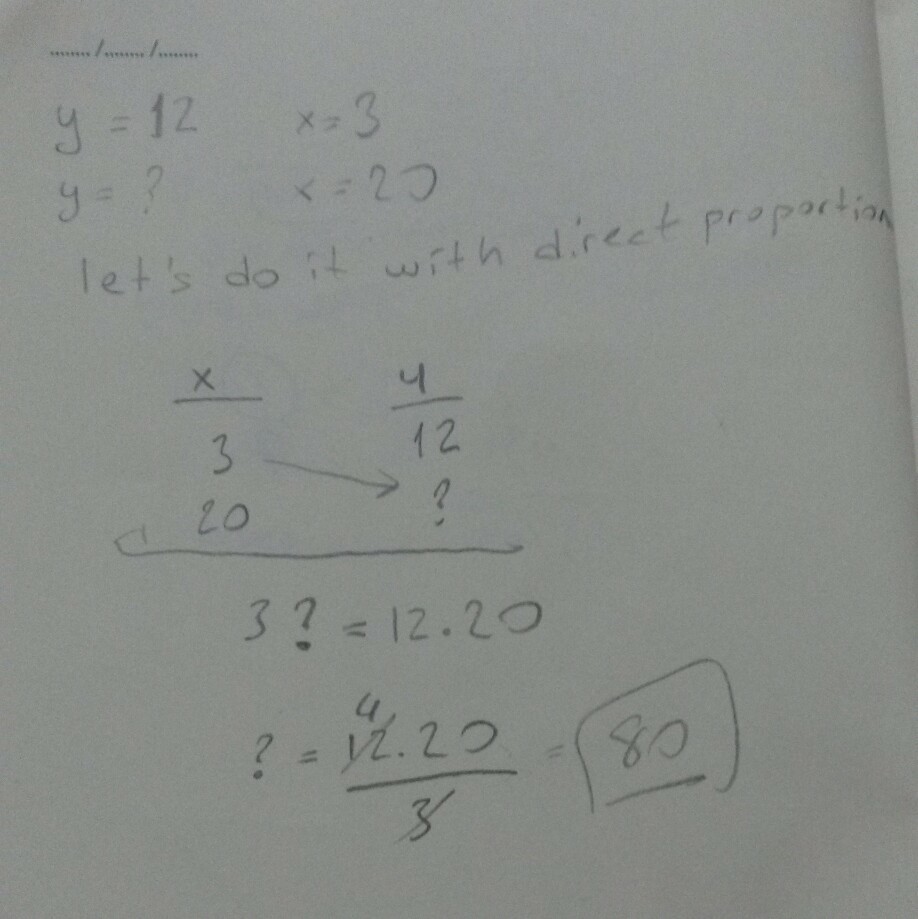 ......../......../........
y = 12 x = 3
y = ? x = 20
let's do it with direct proportion
x y
3 12
20 ?
3 ? = 12.20
? = 12.20 / 3 = 80
4